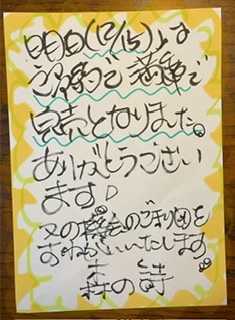 明日(12/15)は
ご予約で満車で
完売となりました。
ありがとうござい
ます!
又の機会のご利用を
おねがいいたします。
森の詩